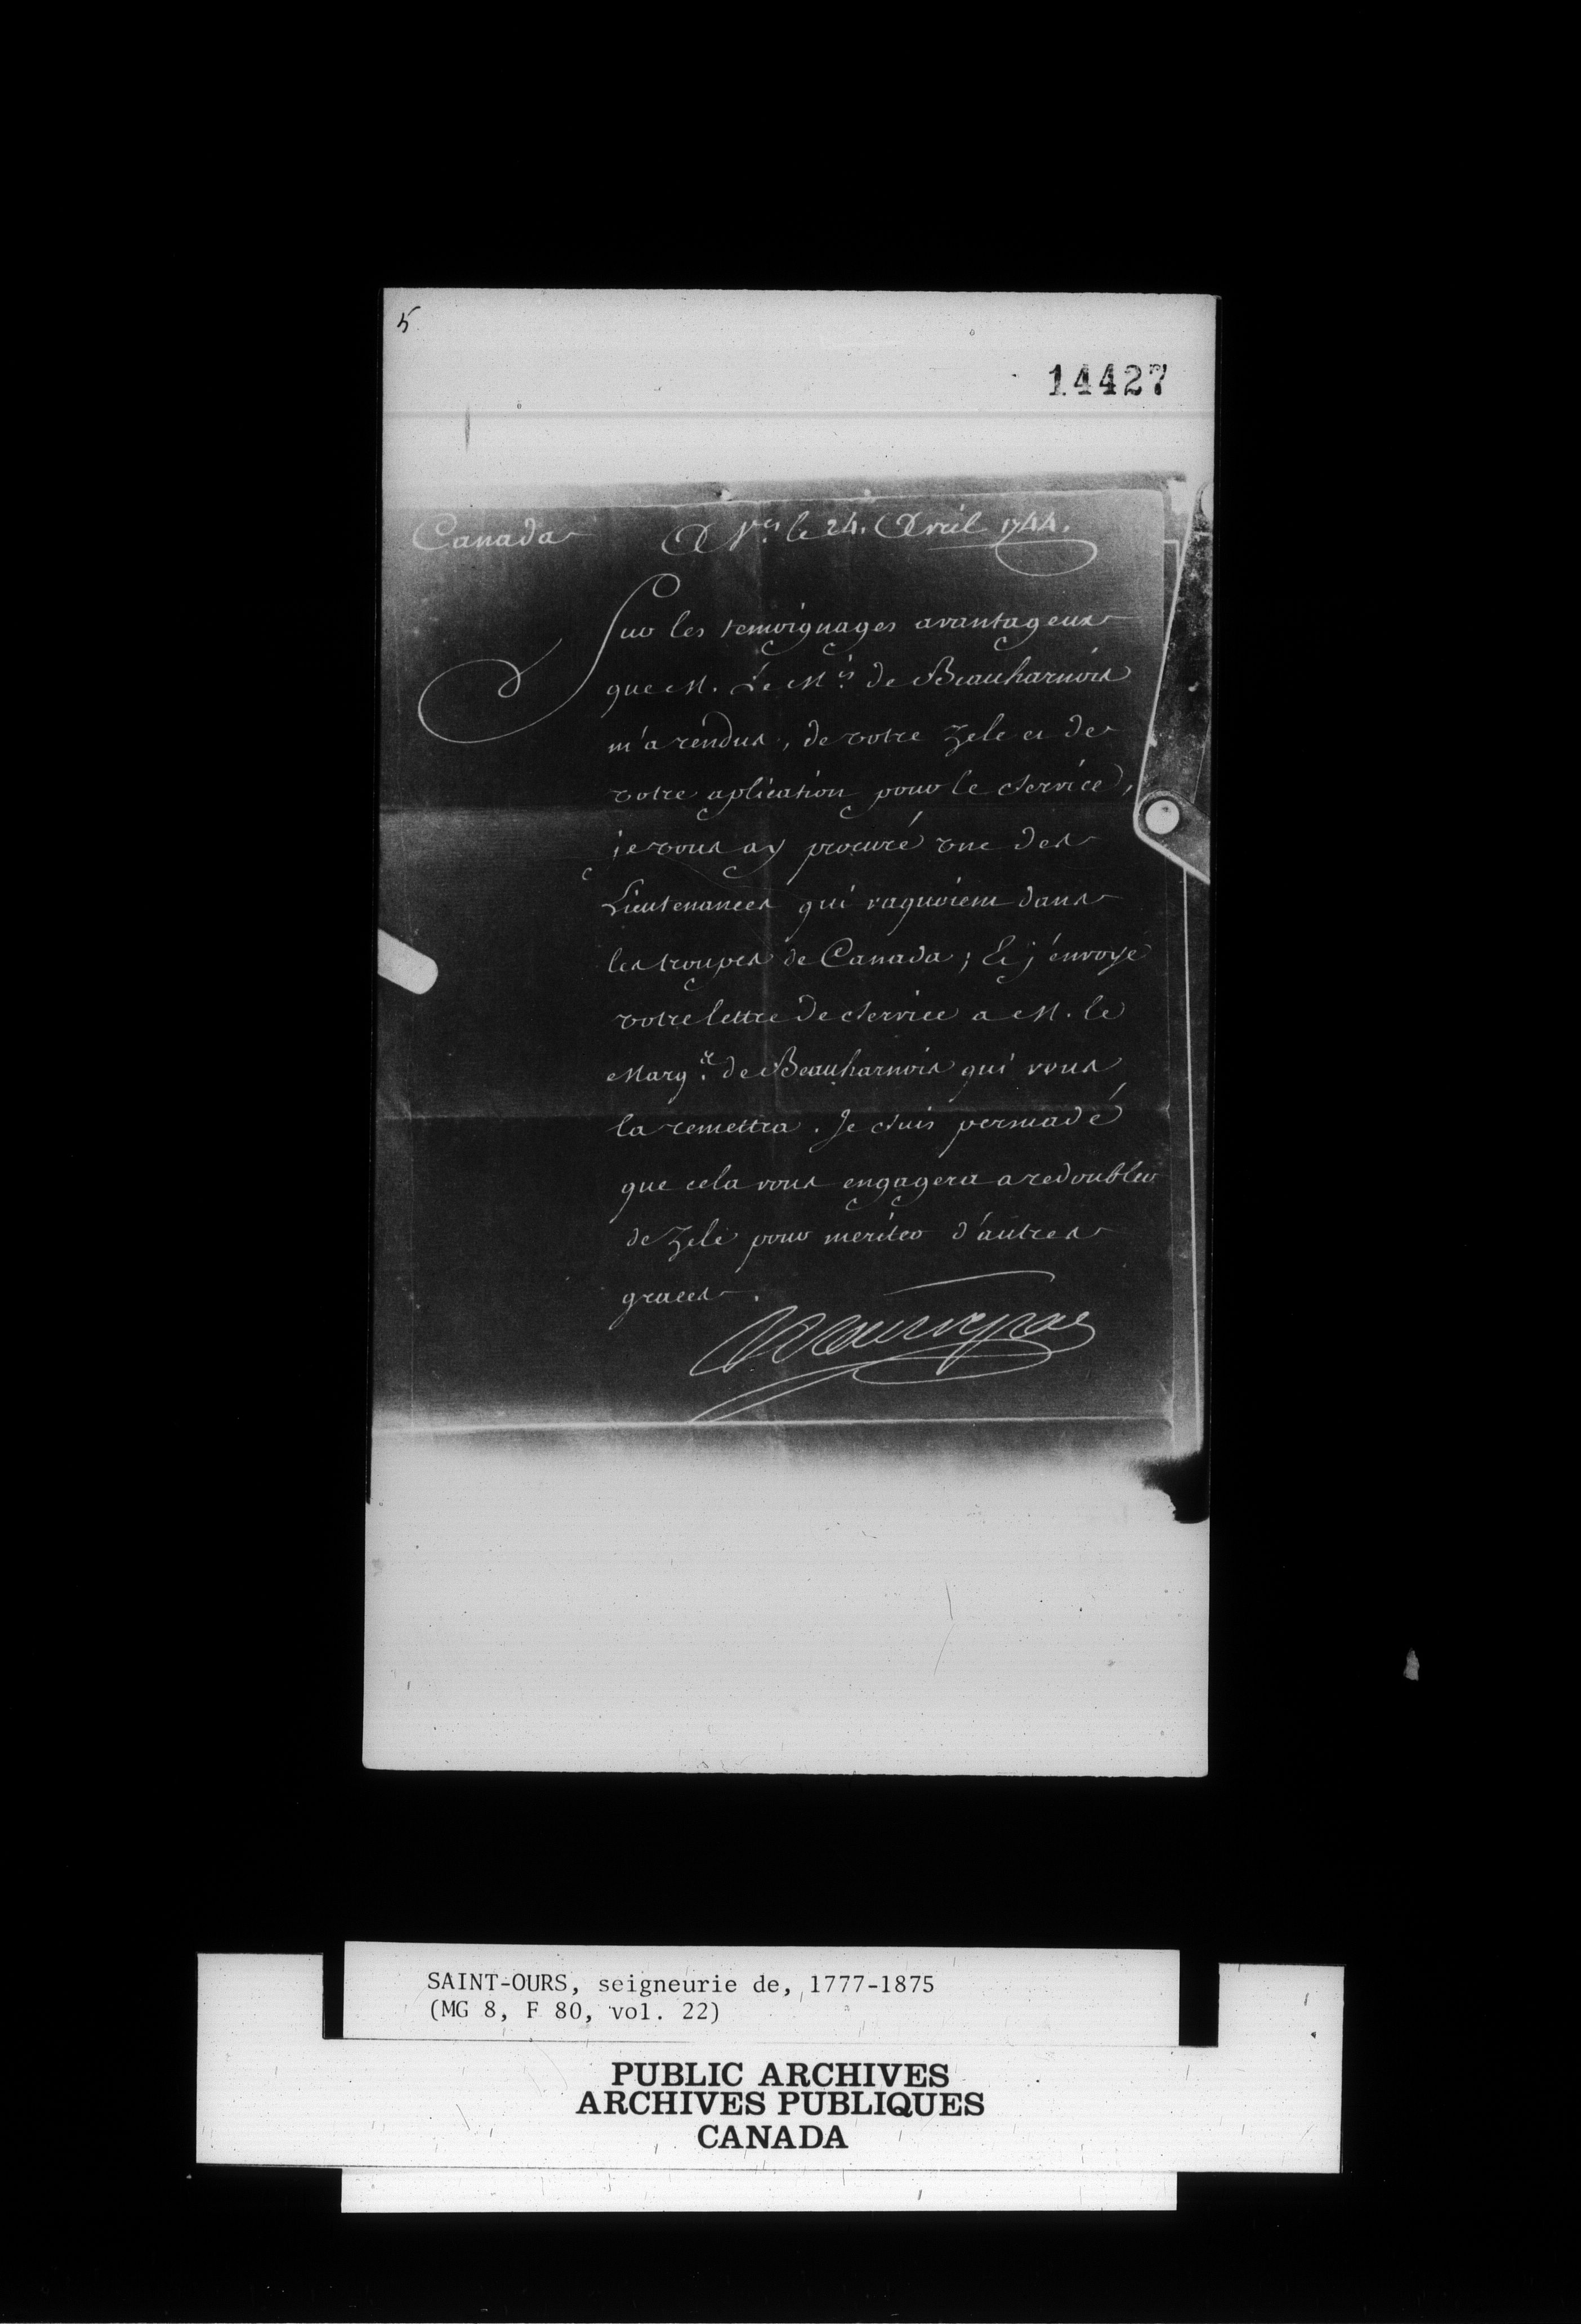 5
14427
Canada
A V.es le 24. Avril 1744.
Sur les temoignages avantageux
que M. Le M.is de Beauharnois
m'a rendus, de votre zele et de
votre aplication pour le service,
je vous ay procuré une des
Lieutenances qui vaquoient dans
les troupes de Canada; Et j'envoye
votre lettre de service a M. le
Marq.is de Beauharnois qui vous
la remettra. Je suis persuadé
que cela vous engagera a redoubler
de zele pour meriter d'autres
graces.
Maurepas
SAINT-OURS, seigneurie de, 1777-1875
(MG 8, F 80, vol. 22)
PUBLIC ARCHIVES
ARCHIVES PUBLIQUES
CANADA